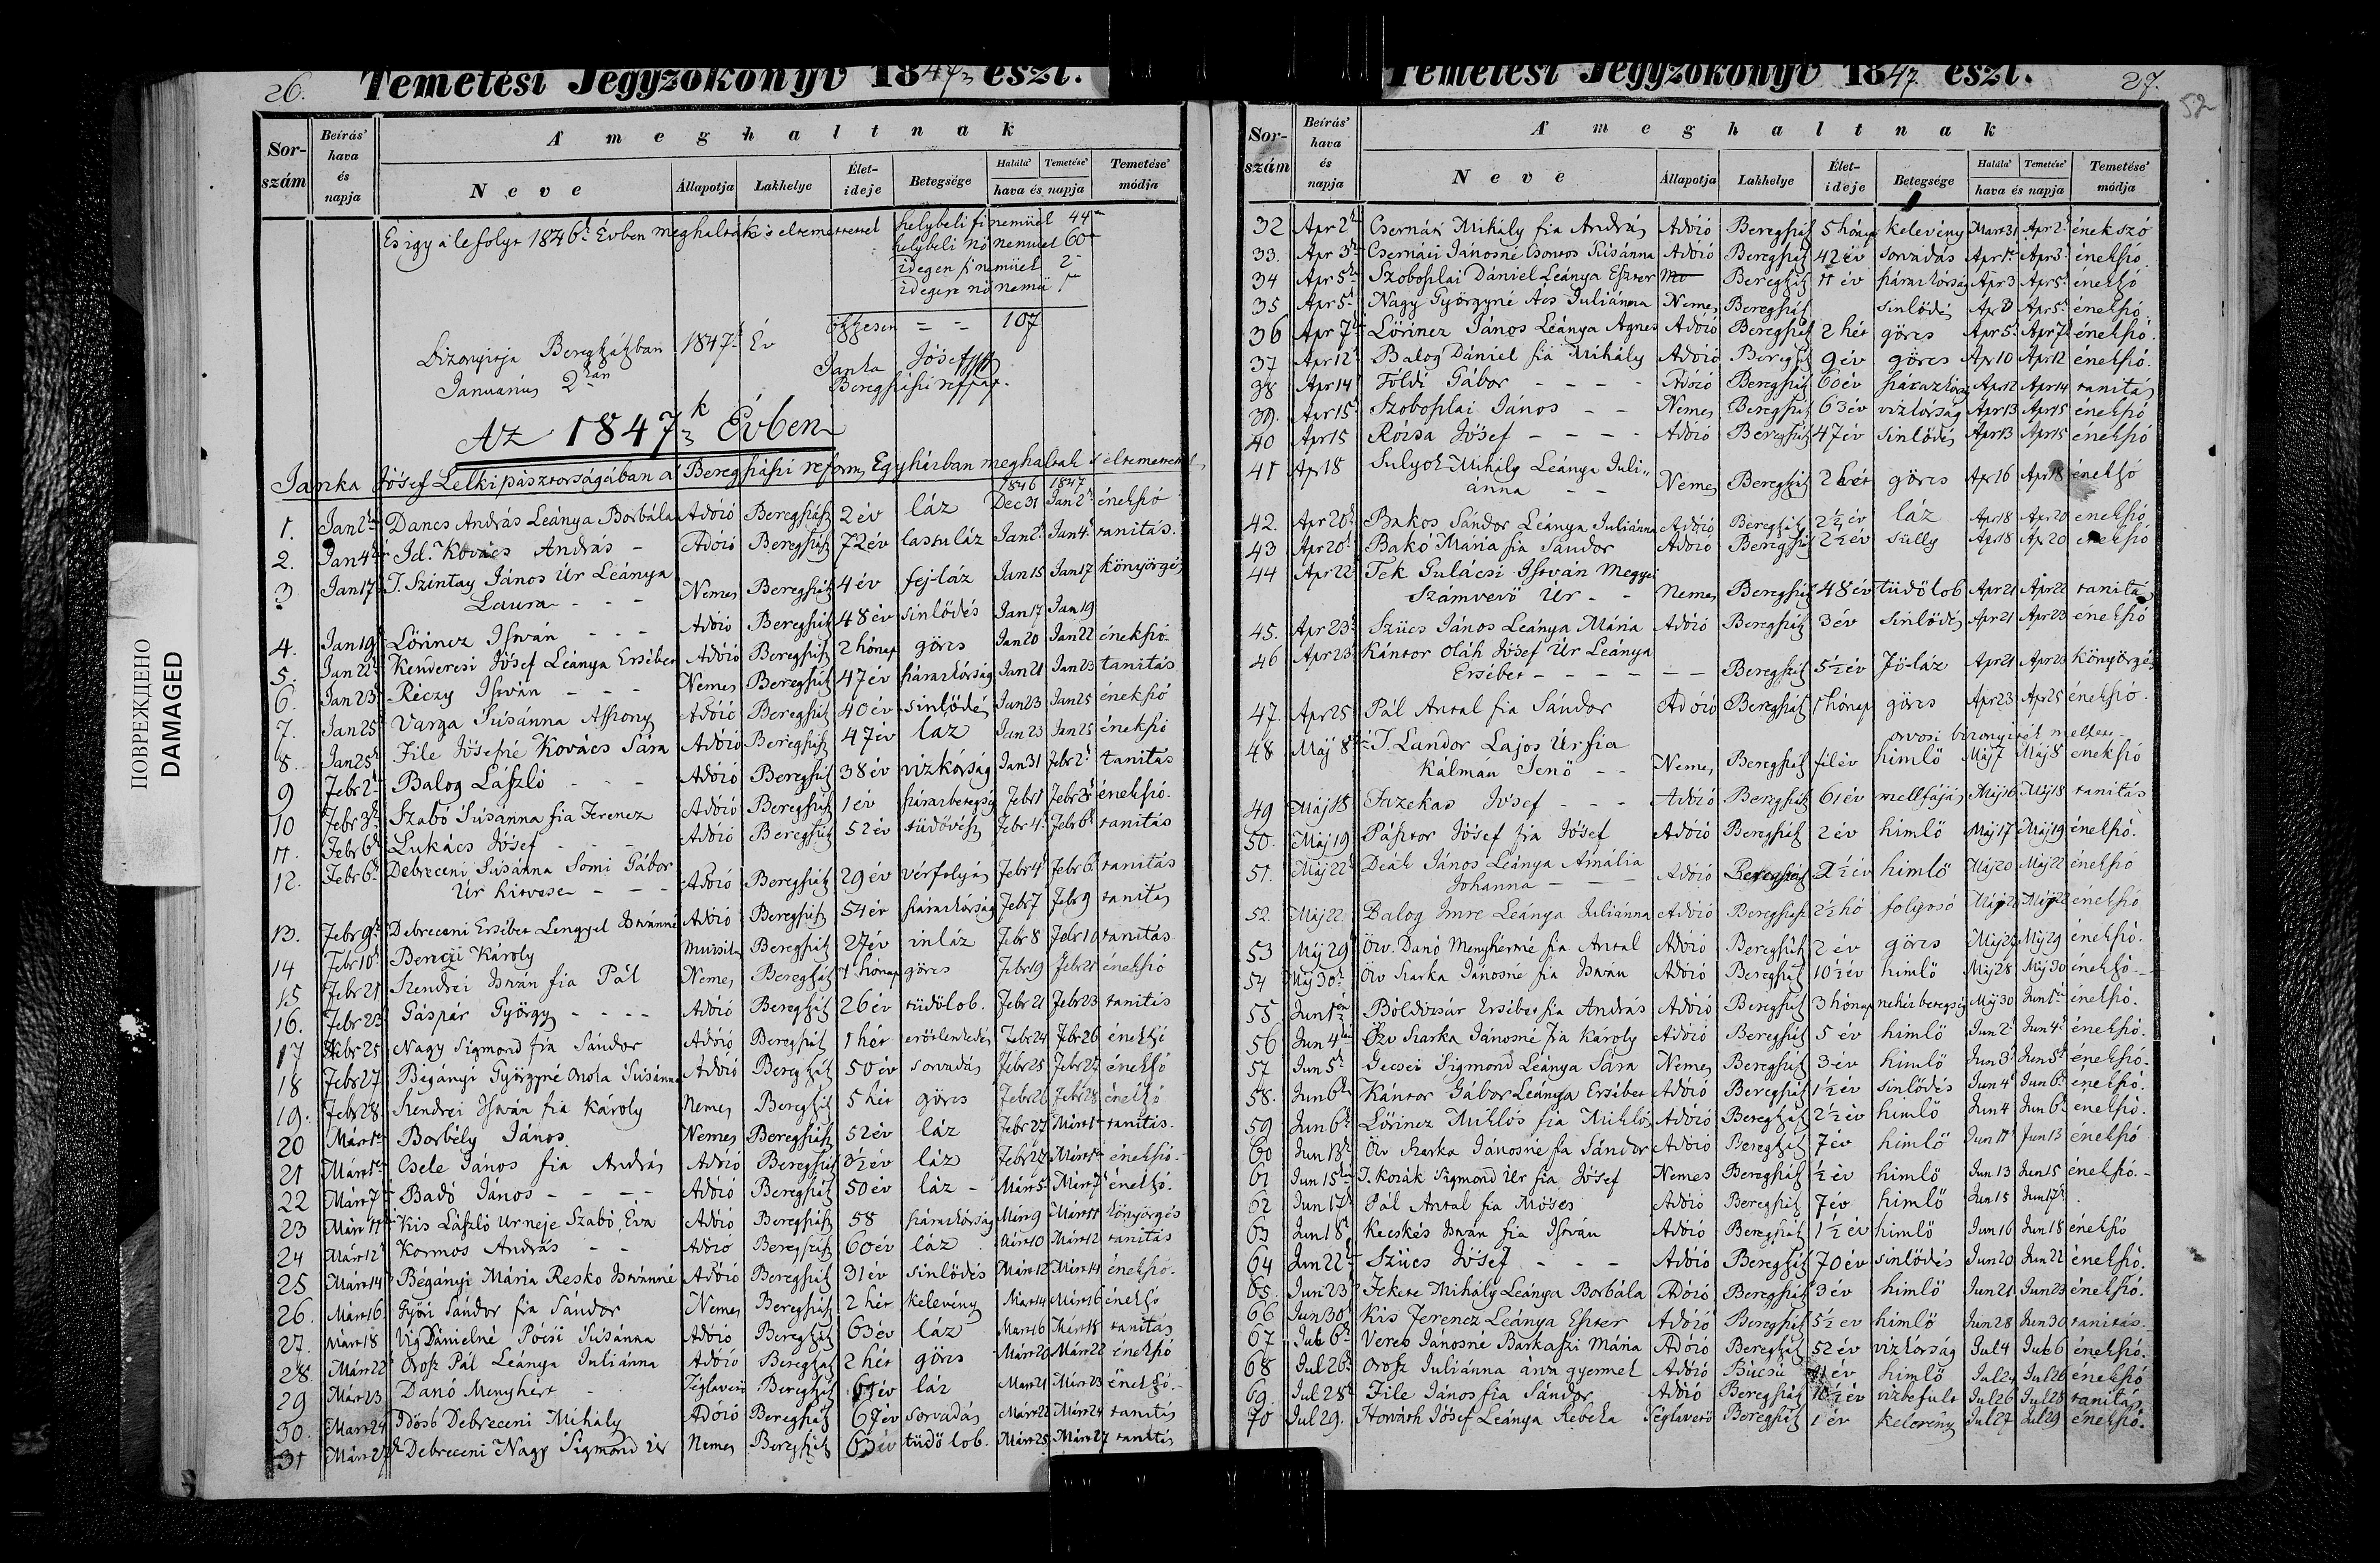 26.
Temetési Jegyzőkönyv 1847 eszt.
Sor-szám Beírás' hava és napja A' meghaltnak
Neve Állapotja Lakhelye Élet-ideje Betegsége Halála' Temetése' hava és napja Temetése' módja
És igy a lefolyt 1846 Évben meghaltak s eltemettettek helybeli fi nemüek 44
helybeli nö nemüek 60
idegen fi nemüek 2
idegen nö nemü 1
öszvesen = = 107
Bizonyitja Beregszászban 1847 Év
Januarius 2kán
Janka Jósef
Beregszászi ref pap.
Az 1847k Évben
Janka Jósef Lelkipásztorságában a' Beregszászi reform. Egyházban meghaltak s eltemettettek
1846 1847
1. Jan 2 Dancs András Leánya Borbála Adózó Beregszász 2 év láz Dec 31 Jan 2 énekszó
2. Jan 4 Id. Kovács András - Adózó Beregszász 72 év lassu láz Jan 2 Jan 4 tanitás.
3 Jan 17 T. Szintay János Úr Leánya
Laura - - - Nemes Beregszász 4 év fej-láz Jan 15 Jan 17 könyörgés
4. Jan 19 Lörincz István - - - Adózó Beregszász 48 év sinlödés Jan 17 Jan 19
5. Jan 22 Kenderesi Jósef Leánya Ersébet Adózó Beregszász 2 hónap görcs Jan 20 Jan 22 énekszó
6. Jan 23 Réczy István - - - Nemes Beregszász 47 év szárazkórság Jan 21 Jan 23 tanitás
7. Jan 25 Varga Susánna Asszony Adózó Beregszász 40 év sinlödés Jan 23 Jan 25 énekszó
8. Jan 25 File Jósefné Kovács Sára Adózó Beregszász 47 év láz Jan 23 Jan 25 énekszó
9 Febr 2 Balog László - - Adózó Beregszász 38 év vizkórság Jan 31 Febr 2 tanitás
10 Febr 3 Szabó Susánna fia Ferencz Adózó Beregszász 1 év szárazbetegség Febr 1 Febr 3 énekszó
11. Febr 6 Lukács Jósef - - - Adózó Beregszász 52 év tüdövész Febr 4 Febr 6 tanitás
12. Febr 6 Debreceni Susánna Somi Gábor
Úr hitvese - - - Adózó Beregszász 29 év vérfolyás Febr 4 Febr 6 tanitás
13. Febr 9 Debreceni Ersébet Lengyel Istvánné Adózó Beregszász 54 év szárazkórság Febr 7 Febr 9 tanitás
14 Febr 10 Károly Beregszász 27 év inláz Febr 8 Febr 10 tanitás
15 Febr 21 Szendrei István fia Pál Nemes Beregszász 1 hónap görcs Febr 19 Febr 21 énekszó
16. Febr 23 Gáspár György - - - - Adózó Beregszász 26 év tüdölob. Febr 21 Febr 23 tanitás
17 Febr 25 Nagy Sigmond fia Sándor Adózó Beregszász 1 hét erötlenkedés Febr 24 Febr 26 énekszó
18 Febr 27 Bigányi Györgyné Susánna Adózó Beregszász 50 év sorvadás Febr 25 Febr 27 énekszó
19. Febr 28 Szendrei István fia Károly Nemes Beregszász 5 hét görcs Febr 26 Febr 28 énekszó
20 Márt 1 Borbély János Nemes Beregszász 52 év láz Febr 27 Márt 1 tanitás.
21 Márt 1 Csele János fia András Adózó Beregszász 3½ év láz Febr 27 Márt 1 énekszó
22 Márt 7 Badó János - - - - Adózó Beregszász 50 év láz - Márt 5 Márt 7 énekszó.
23 Márt 11 Kis László Ur neje Szabó Éva Adózó Beregszász 58 szárazkórság Márt 9 Márt 11 könyörgés
24 Márt 12 Kormos András - - Adózó Beregszász 60 év láz Márt 10 Márt 12 tanitás
25 Márt 14 Bégányi Mária Resko Istvánné Adózó Beregszász 31 év sinlödés Márt 12 Márt 14 énekszó.
26. Márt 16. Györi Sándor fia Sándor Nemes Beregszász 2 hét kelevény Márt 14 Márt 16 énekszó
27. Márt 18 Vig Dánielné Pócsi Susánna Adózó Beregszász 63 év láz Márt 16 Márt 18 tanitás
28. Márt 22 Orosz Pál Leánya Juliánna Adózó Beregszász 2 hét görcs Márt 20 Márt 22 énekszó
29 Márt 23 Danó Menyhért - Téglavető Beregszász év láz Márt 21 Márt 23 énekszó.
30. Márt 24 Idösb Debreceni Mihály Adózó Beregszász 67 év sorvadás Márt 22 Márt 24 tanitás
31 Márt 27 Debreceni Nagy Sigmond Úr Nemes Beregszász 63 év tüdö lob. Márt 25 Márt 27 tanitás
Temetési Jegyzőkönyv 1847 eszt.
27.
52
Sor-szám Beírás' hava és napja A' meghaltnak
Neve Állapotja Lakhelye Élet-ideje Betegsége Halála' Temetése' hava és napja Temetése' módja
32 Apr 2 Csernási Mihály fia András Adózó Beregszász 5 hónap kelevény Mart 31 Apr 2 énekszó
33. Apr 3 Csernási Jánosné Csontos Susánna Adózó Beregszász 42 év sorvadás Apr 1 Apr 3 énekszó
34 Apr 5 Szoboszlai Dániel Leánya Eszter Beregszász 11 év szárazkórság Apr 3 Apr 5 énekszó
35 Apr 5 Nagy Györgyné Ács Juliánna Nemes Beregszász sinlödés Apr 3 Apr 5 énekszó.
36 Apr 7 Lörincz János Leánya Agnes Adózó Beregszász 2 hét görcs Apr 5 Apr 7 énekszó.
37 Apr 12 Balog Dániel fia Mihály Adózó Beregsz 9 év görcs Apr 10 Apr 12 énekszó.
38 Apr 14 Földi Gábor - - - - Adózó Beregszász 60 év szárazkórság Apr 12 Apr 14 tanitás
39. Apr 15 Szoboszlai János - - Nemes Beregszász 63 év vizkórság Apr 13 Apr 15 énekszó
40 Apr 15 Rózsa Jósef - - - - Adózó Beregszász 47 év sinlödés Apr 13 Apr 15 énekszó
41 Apr 18 Sulyok Mihály Leánya Juli„
ánna - - Nemes Beregszász 2 hét görcs Apr 16 Apr 18 énekszó
42. Apr 20 Bakos Sándor Leánya Juliánna Adózó Beregszász 2½ év láz Apr 18 Apr 20 énekszó
43 Apr 20 Bakó Mária fia Sándor Adózó Beregszász 2½ év sülly Apr 18 Apr 20 énekszó
44 Apr 22 Tek Gulácsi István Megyei
Számvevö Úr - - Nemes Beregszász 48 év tüdölob Apr 21 Apr 22 tanitás
45. Apr 23 Szücs János Leánya Mária Adózó Beregszász 3 év sinlödés Apr 21 Apr 23 énekszó
46 Apr 23 Kántor Oláh Jósef Úr Leánya
Ersébet - - - - - - - Beregszász 5½ év Fö-láz Apr 21 Apr 23 könyörgés
47. Apr 25 Pál Antal fia Sándor Adózó Beregszász 1 hónap görcs Apr 23 Apr 25 énekszó.
orvosi bizonyiték mellett -
48 Máj 8 T. Landor Lajos Úr fia
Kálmán Jenö - - Nemes Beregszász fél év himlö Máj 7 Máj 8 énekszó
49 Máj 18 Fazekas Jósef - - - Adózó Beregszász 61 év mellfájás Máj 16 Máj 18 tanitás
50. Máj 19 Pásztor Jósef fia Jósef Adózó Beregszász 2 év himlö Máj 17 Máj 19 énekszó.
51. Máj 22 Deák János Leánya Amália
Johanna - - - Adózó Beregszász ½ év himlö Máj 20 Máj 22 énekszó
52. Máj 22 Balog Imre Leánya Juliánna Adózó Beregszász 2½ hó Máj 22 énekszó
53 Máj 29 Özv. Danó Menyhértné fia Antal Adózó Beregszász 2 év görcs Máj 27 Máj 29 énekszó.
54 Máj 30 Özv Szarka Jánosné fia István Adózó Beregszász 10½ év himlö Máj 28 Máj 30 énekszó
55 Jun 1 Bóldizsár Ersébet fia András Adózó Beregszász 3 hónap nehéz betegség Máj 30 Jun 1 énekszó.
56 Jun 4 Özv Szarka Jánosné fia Károly Adózó Beregszász 5 év himlö Jun 2 Jun 4 énekszó.
57 Jun 5 Gecsei Sigmond Leánya Sára Nemes Beregszász 3 év himlö Jun 3 Jun 5 énekszó
58. Jun 6 Kántor Gábor Leánya Ersébet Adózó Beregszász 1½ év sinlödés Jun 4 Jun 6 énekszó.
59 Jun 6 Lörincz Miklós fia Miklós Adózó Beregszász 2½ év himlö Jun 4 Jun 6 énekszó.
60 Jun 13 Özv Szarka Jánosné fia Sándor Adózó Beregszász 7 év himlö Jun 11 Jun 13 énekszó
61 Jun 15 T. Kozák Sigmond Úr fia Jósef Nemes Beregszász ½ év himlö Jun 13 Jun 15 énekszó. -
62 Jun 17 Pál Antal fia Móses Adózó Beregszász 7 év himlö Jun 15 Jun 17
63 Jun 18 Kecskés István fia István Adózó Beregszász 1½ év himlö Jun 16 Jun 18 énekszó
64 Jun 22 Szücs Jósef - - - Adózó Beregszász 70 év sinlödés Jun 20 Jun 22 énekszó.
65. Jun 23 Fekete Mihály Leánya Borbála Adózó Beregszász 3 év himlö Jun 21 Jun 23 énekszó.
66 Jun 30 Kis Ferencz Leánya Eszter Adózó Beregszász 5½ év himlö Jun 28 Jun 30 tanitás.
67 Jul 6 Veres Jánosné Barkaszi Mária Adózó Beregszász 52 év vizkórság Jul 4 Jul 6 énekszó.
68 Jul 26 Orosz Juliánna árva gyermek Adózó Bucsu 11 év himlö Jul 24 Jul 26 énekszó
69. Jul 28 File János fia Sándor Adózó Beregszász 10½ év vizbe fult Jul 26 Jul 28 tanitás.
70 Jul 29. Horváth Jósef Leánya Rebeka Téglavető Beregszász 1 év kelevény Jul 27 Jul 29 énekszó.
ПОВРЕЖДЕНО
DAMAGED